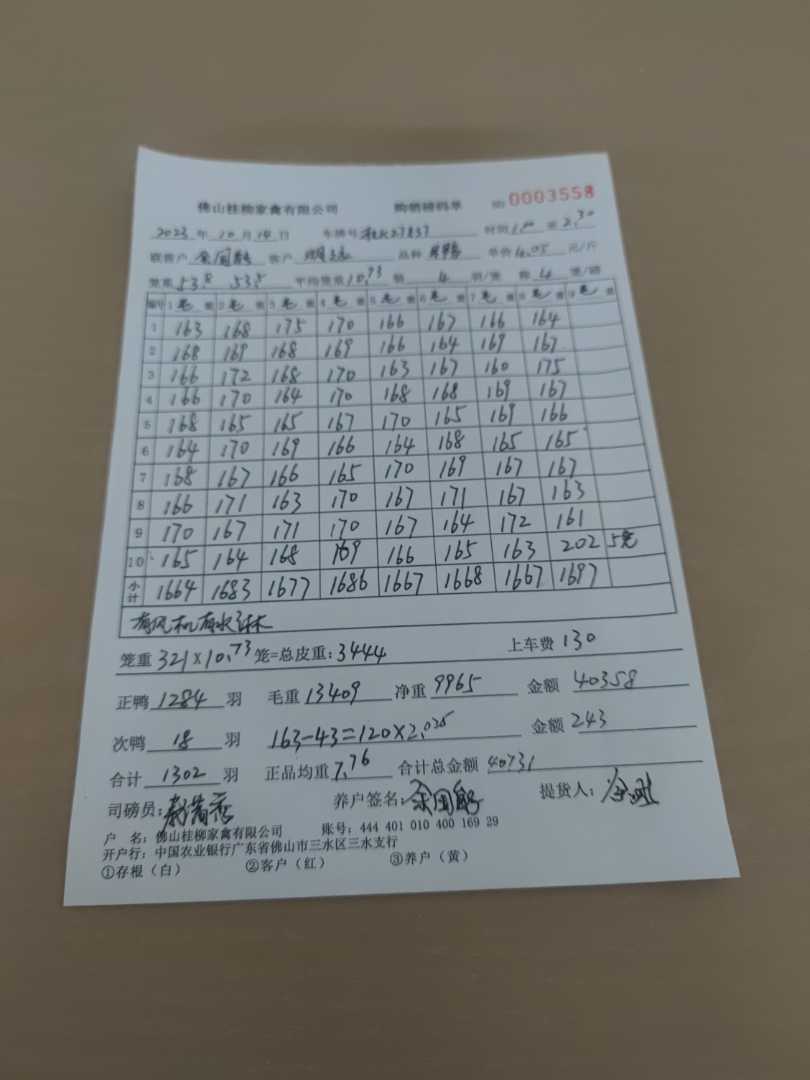 佛山桂柳家禽有限公司 购销磅码单 № 0003558
2023 年 10 月 14 日 车牌号 27837 时间 1.00 至 2.30
联营户 余国 客户 品种 单价 4.05 元/斤
笼重 53.8 53.5 平均笼重 10.73 每 4 羽/笼 称 4 笼/磅
编号 1 毛 重 2 毛 重 3 毛 重 4 毛 重 5 毛 重 6 毛 重 7 毛 重 8 毛 重 9 毛 重
1 163 168 175 170 166 167 166 164
2 168 169 168 169 166 164 169 167
3 166 172 168 170 163 167 160 175
4 166 170 164 170 168 168 169 167
5 168 165 165 167 170 165 169 166
6 164 170 169 166 164 168 165 165
7 168 167 166 165 170 169 167 167
8 166 171 163 170 167 171 167 163
9 170 167 171 170 167 164 172 161
10 165 164 168 169 166 165 163 202 5笼
小计 1664 1683 1677 1686 1667 1668 1667 1697
有风机有水淋
笼重 321×10.73 笼=总皮重:3444 上车费 130
正鸭 1284 羽 毛重 13409 净重 9965 金额 40358
次鸭 18 羽 163-43=120×2.025 金额 243
合计 1302 羽 正品均重 7.76 合计总金额 40731
司磅员: 养户签名:余国 提货人:
户 名:佛山桂柳家禽有限公司 账号:444 401 010 400 169 29
开户行:中国农业银行广东省佛山市三水区三水支行
①存根(白) ②客户(红) ③养户(黄)